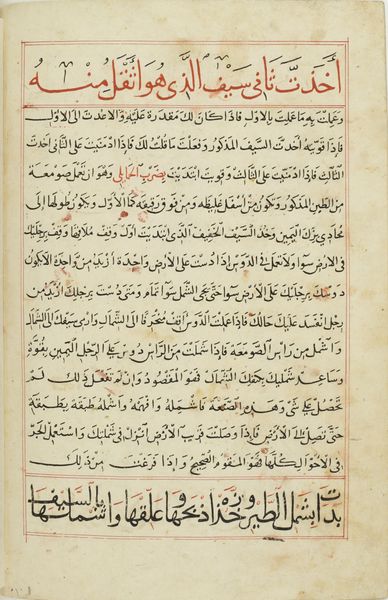 أخذت ثاني سيف الذي هو أثقل منه
وعملت به ما عملت بالأول فإذا كان لك مقدرة عليه والا عدت الى الأول
فإذا قويته أخذت السيف المذكور وفعلت ما قلت لك فإذا ادمنت على الثاني أخذت
الثالث فإذا ادمنت على الثالث وقويت ابتديت بضرب الحمايلي وهو أن تعمل صومعة
من الطين المذكور وتكون من أسفل غليظه ومن فوق رقيقه كما الأول ويكون طولها إلى
محاذي بزك اليمين وخذ السيف الخفيف الذي ابتديت اول وقف ملاقيها وقف برجليك
في الأرض سوا ولا تعمل في الدوس إذا دست على الأرض واحدة أزيد من واحدة لا يكون
دوسك برجليك على الأرض سوا حتى يجي الشمل سوا تمام ومتى دست برجلك أزيد من
رجل انفسد عليك حالك فإذا عملت الدوس اقف منحرفا الى الشمال وارمي سيفك الى الشمال
واشمل من راس الصومعة فإذا شملت من الراس دوس على الرجل اليمين بقوة
وساعد شملك بكتفك الشمال فهو المقصود وان لم تفعل ذلك لم
تحصل على شي وهذه الصنعة فاشمله وافهمه واشمله طبقة بطبقة
حتى تصل الى الأرض فإذا وصلت قرب الأرض انزل في شملتك واستعمل الجر
في الأحوال كلها فهو المنقوم الصحيح وإذا فرغت من ذلك
بدات بشمل الطير وخذ وزه اذبحها وعلقها واشملها بالسيف